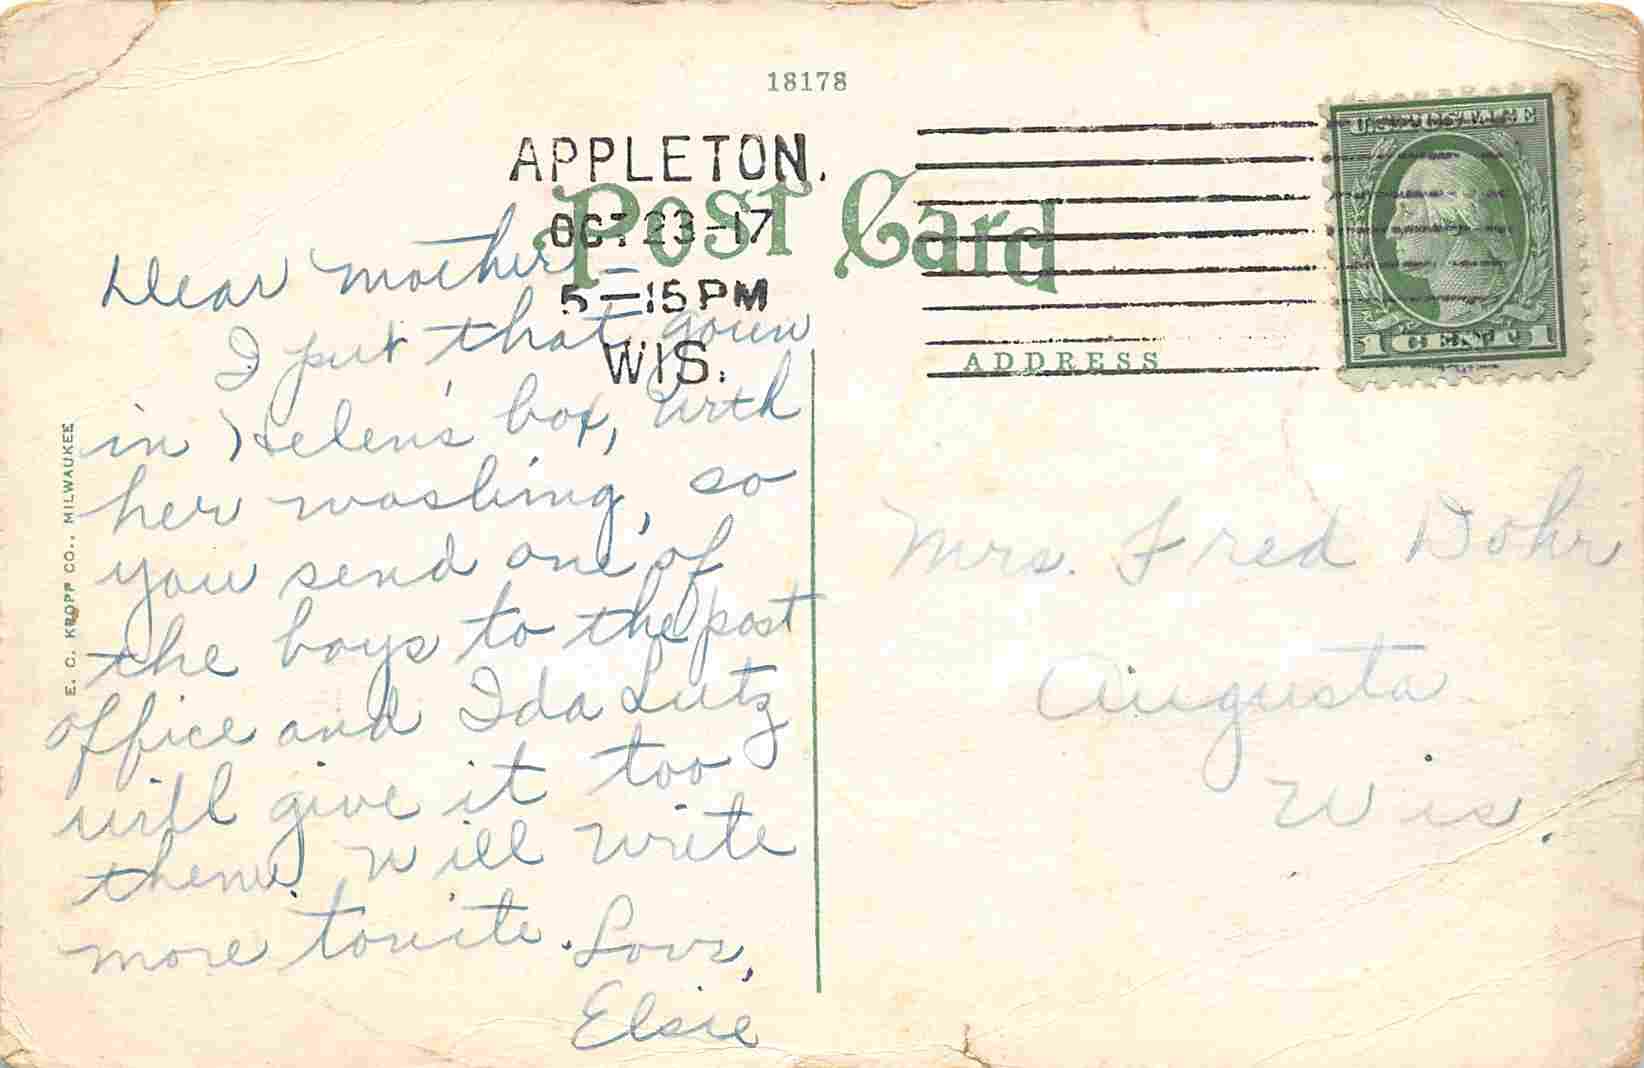 18178
APPLETON.
OCT 23-17
5-15 PM
WIS.
Post Card
ADDRESS
1 CENT 1
E. C. KROPP CO., MILWAUKEE
Dear Mother:-
I put that gown
in Helen's box, with
her washing, so
you send one of
the boys to the post
office and Ida Lutz
will give it too
them. Will write
more tonite. Love,
Elsie
Mrs. Fred Dohr
Augusta
Wis.